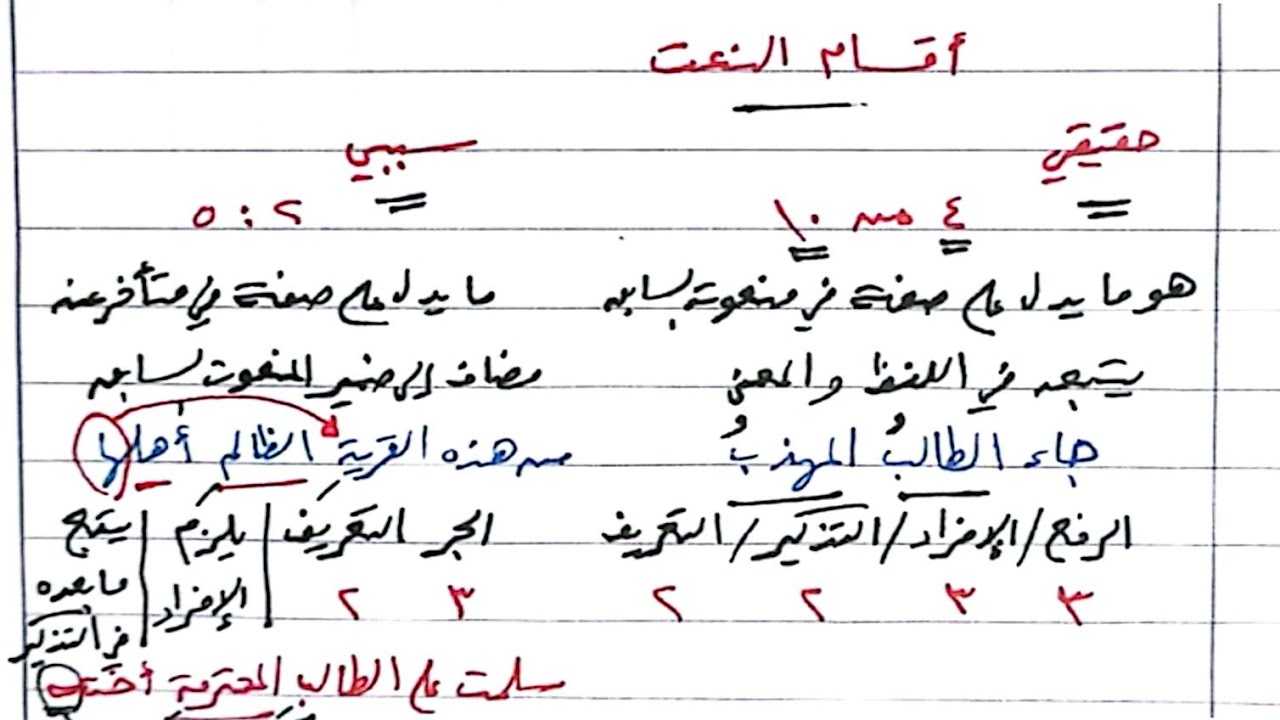 أقسام النعت
حقيقي
٤ من ١٠
هو ما يدل على صفة في منعوت سابق
يتبعه في اللفظ والمعنى
جاء الطالبُ المهذبُ
الرفع / الإفراد / التذكير / التعريف
٣ ٣ ٢ ٢
سببي
٢ : ٥
ما يدل على صفة في متأخر عنه
مضاف إلى ضمير المنعوت السابق
من هذه القرية الظالم أهلها
الجر التعريف | يلزم | يتبع
٣ ٢ | الإفراد | ما بعده
في التذكير
سلمت على الطالب المحترمة أخته